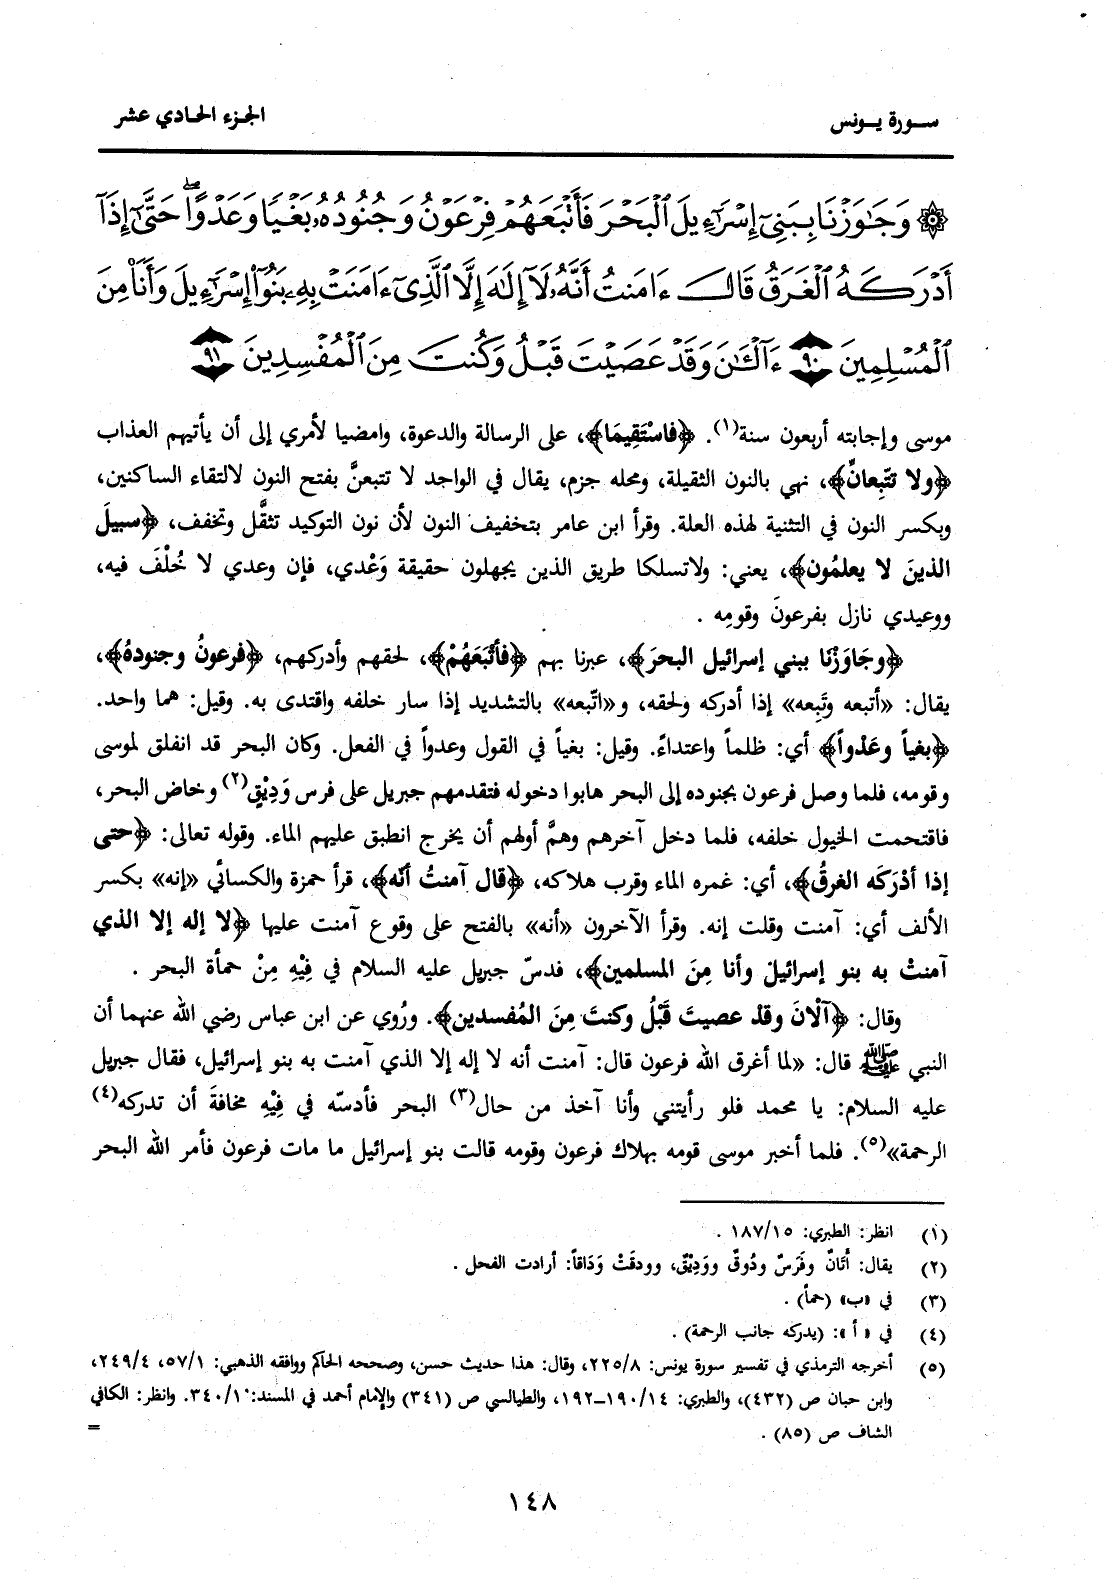 سورة يونس
الجزء الحادي عشر
۞ وَجَٰوَزْنَا بِبَنِىٓ إِسْرَٰٓءِيلَ ٱلْبَحْرَ فَأَتْبَعَهُمْ فِرْعَوْنُ وَجُنُودُهُۥ بَغْيًا وَعَدْوًا ۖ حَتَّىٰٓ إِذَآ
أَدْرَكَهُ ٱلْغَرَقُ قَالَ ءَامَنتُ أَنَّهُۥ لَآ إِلَٰهَ إِلَّا ٱلَّذِىٓ ءَامَنَتْ بِهِۦ بَنُوٓا۟ إِسْرَٰٓءِيلَ وَأَنَا۠ مِنَ
ٱلْمُسْلِمِينَ ٩٠ ءَآلْـَٰٔنَ وَقَدْ عَصَيْتَ قَبْلُ وَكُنتَ مِنَ ٱلْمُفْسِدِينَ ٩١
موسى وإجابته أربعون سنة(١). ﴿فاسْتَقِيمَا﴾، على الرسالة والدعوة، وامضيا لأمري إلى أن يأتيهم العذاب
﴿ولا تتّبِعانِّ﴾، نهي بالنون الثقيلة، ومحله جزم، يقال في الواحد لا تتبعنَّ بفتح النون لالتقاء الساكنين،
وبكسر النون في التثنية لهذه العلة. وقرأ ابن عامر بتخفيف النون لأن نون التوكيد تثقَّل وتخفف، ﴿سبيلَ
الذينَ لا يعلمُون﴾، يعني: ولاتسلكا طريق الذين يجهلون حقيقة وَعْدي، فإن وعدي لا خُلْفَ فيه،
ووعيدي نازل بفرعونَ وقومِه .
﴿وجَاوَزْنَا ببني إسرائيل البحرَ﴾، عبرنا بهم ﴿فأتْبَعَهُمْ﴾، لحقهم وأدركهم، ﴿فرعونُ وجنودهُ﴾،
يقال: «أتبعه وتَبِعه» إذا أدركه ولحقه، و«اتّبعه» بالتشديد إذا سار خلفه واقتدى به. وقيل: هما واحد.
﴿بغياً وعَدْواً﴾ أي: ظلماً واعتداءً. وقيل: بغياً في القول وعدواً في الفعل. وكان البحر قد انفلق لموسى
وقومه، فلما وصل فرعون بجنوده إلى البحر هابوا دخوله فتقدمهم جبريل على فرس وَدِيْقٍ(٢) وخاض البحر،
فاقتحمت الخيول خلفه، فلما دخل آخرهم وهمَّ أولهم أن يخرج انطبق عليهم الماء. وقوله تعالى: ﴿حتى
إذا أدْرَكَه الغرقُ﴾، أي: غمره الماء وقرب هلاكه، ﴿قال آمنتُ أنّه﴾، قرأ حمزة والكسائي «إنه» بكسر
الألف أي: آمنت وقلت إنه. وقرأ الآخرون «أنه» بالفتح على وقوع آمنت عليها ﴿لا إله إلا الذي
آمنتْ به بنو إسرائيلَ وأنا مِنَ المسلمين﴾، فدسّ جبريل عليه السلام في فِيْهِ مِنْ حمأة البحر .
وقال: ﴿آلْآنَ وقدْ عصيتَ قَبْلُ وكنتَ مِنَ المُفسدين﴾. ورُوي عن ابن عباس رضي الله عنهما أن
النبي ﷺ قال: «لما أغرق الله فرعون قال: آمنت أنه لا إله إلا الذي آمنت به بنو إسرائيل، فقال جبريل
عليه السلام: يا محمد فلو رأيتني وأنا آخذ من حال(٣) البحر فأدسّه في فِيْهِ مخافةَ أن تدركه(٤)
الرحمة»(٥). فلما أخبر موسى قومه بهلاك فرعون وقومه قالت بنو إسرائيل ما مات فرعون فأمر الله البحر
(١) انظر: الطبري: ١٨٧/١٥ .
(٢) يقال: أَتَانٌ وفَرَسٌ ودُوقٌ ووَدِيْقٌ، وودقَتْ وَدَاقاً: أرادت الفحل .
(٣) في «ب» (حمأ) .
(٤) في « أ »: (يدركه جانب الرحمة) .
(٥) أخرجه الترمذي في تفسير سورة يونس: ٢٢٥/٨، وقال: هذا حديث حسن، وصححه الحاكم ووافقه الذهبي: ٥٧/١، ٢٤٩/٤،
وابن حبان ص (٤٣٢)، والطبري: ١٩٠/١٤ـ١٩٢، والطيالسي ص (٣٤١) والإمام أحمد في المسند: ٣٤٠/١. وانظر: الكافي
الشاف ص (٨٥) .
=
١٤٨